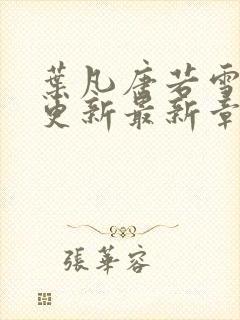 葉凡唐若雪
更新最新章
張華容